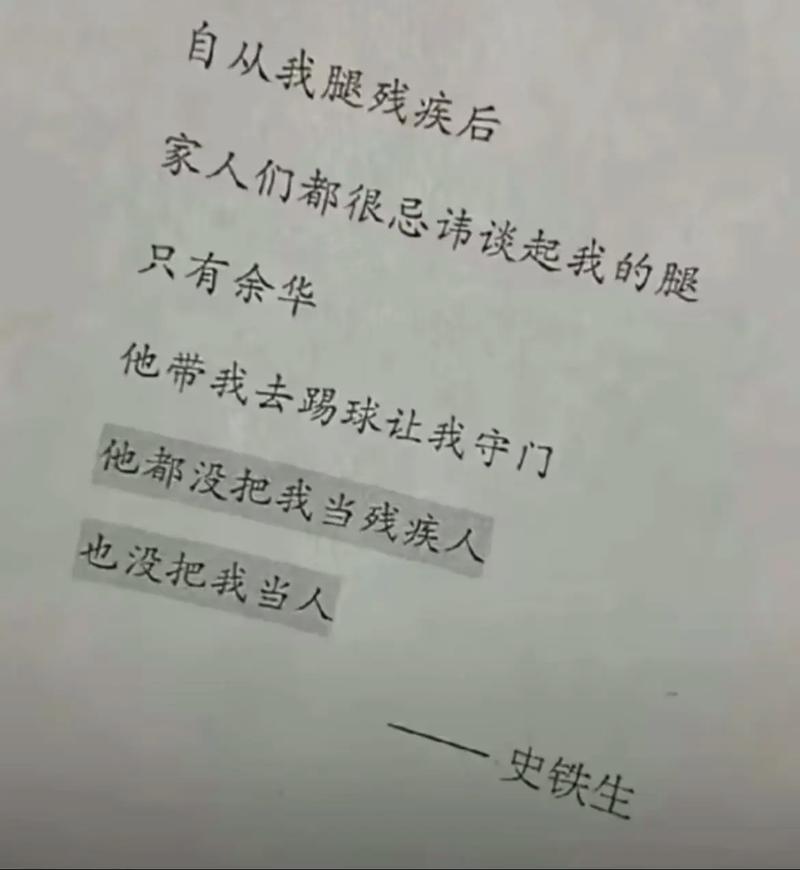 自从我腿残疾后
家人们都很忌讳谈起我的腿
只有余华
他带我去踢球让我守门
他都没把我当残疾人
也没把我当人
—— 史铁生